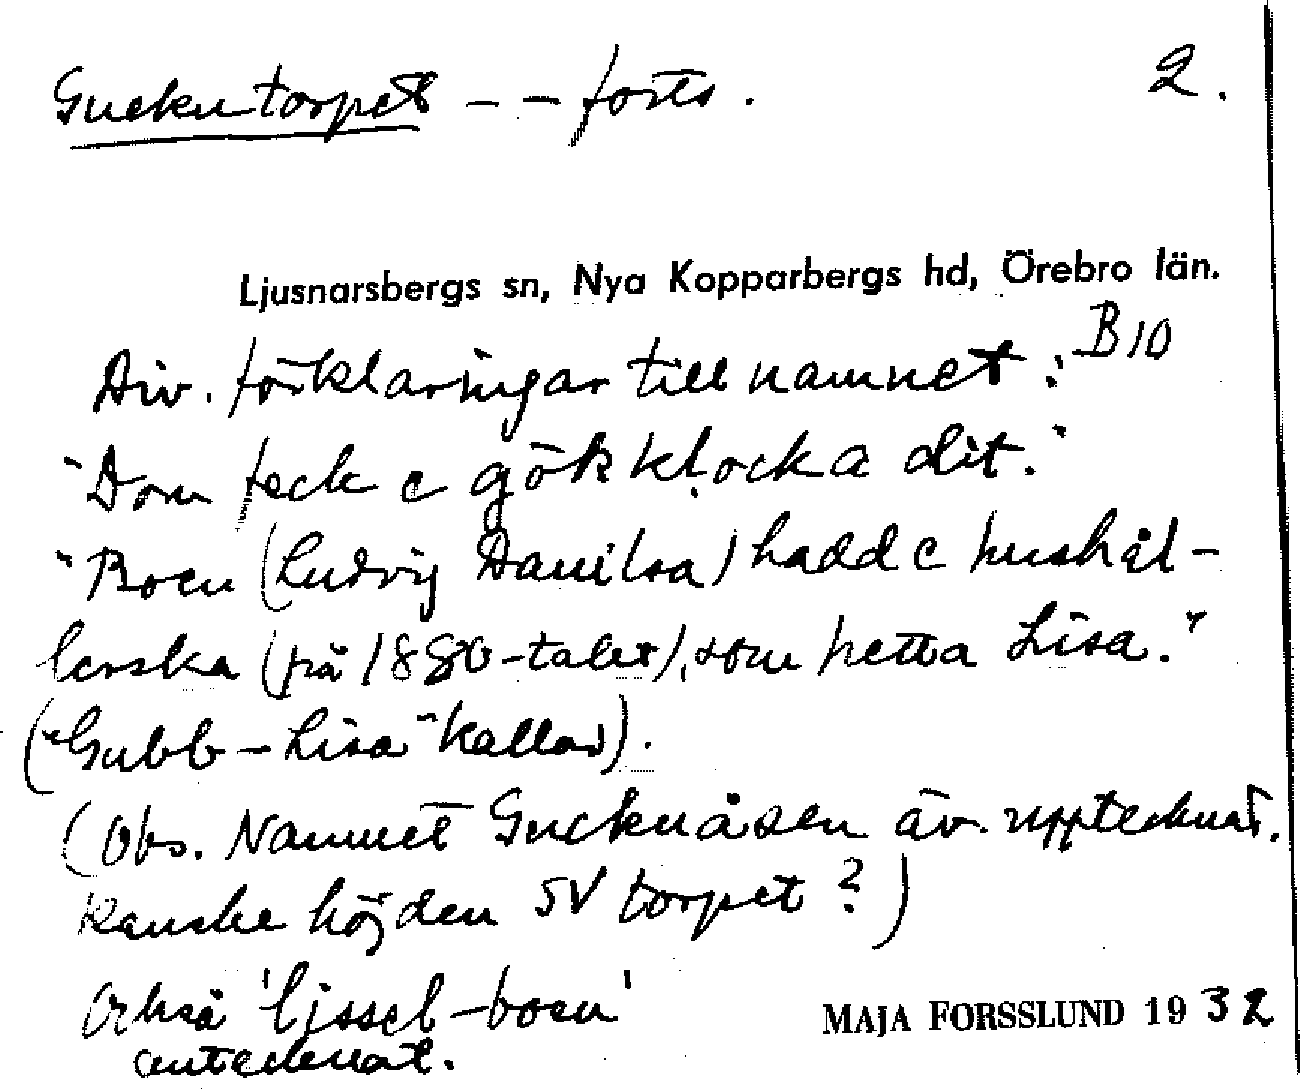 Guckutorpet - - forts. 2.
Ljusnarsbergs sn, Nya Kopparbergs hd, Örebro län.
B 10
Div. förklaringar till namnet:
"Dom feck e gökklocka dit."
"Boen (Ludvig Danilsa) hadde hushål-
lerska (på 1880-talet), som hetta Lisa."
("Gubb-Lisa" kallad).
(Obs. Namnet Guckuåsen äv. upptecknat.
Kanske höjden SV torpet?)
Också 'ljssel-boen'
antecknat.
MAJA FORSSLUND 1932